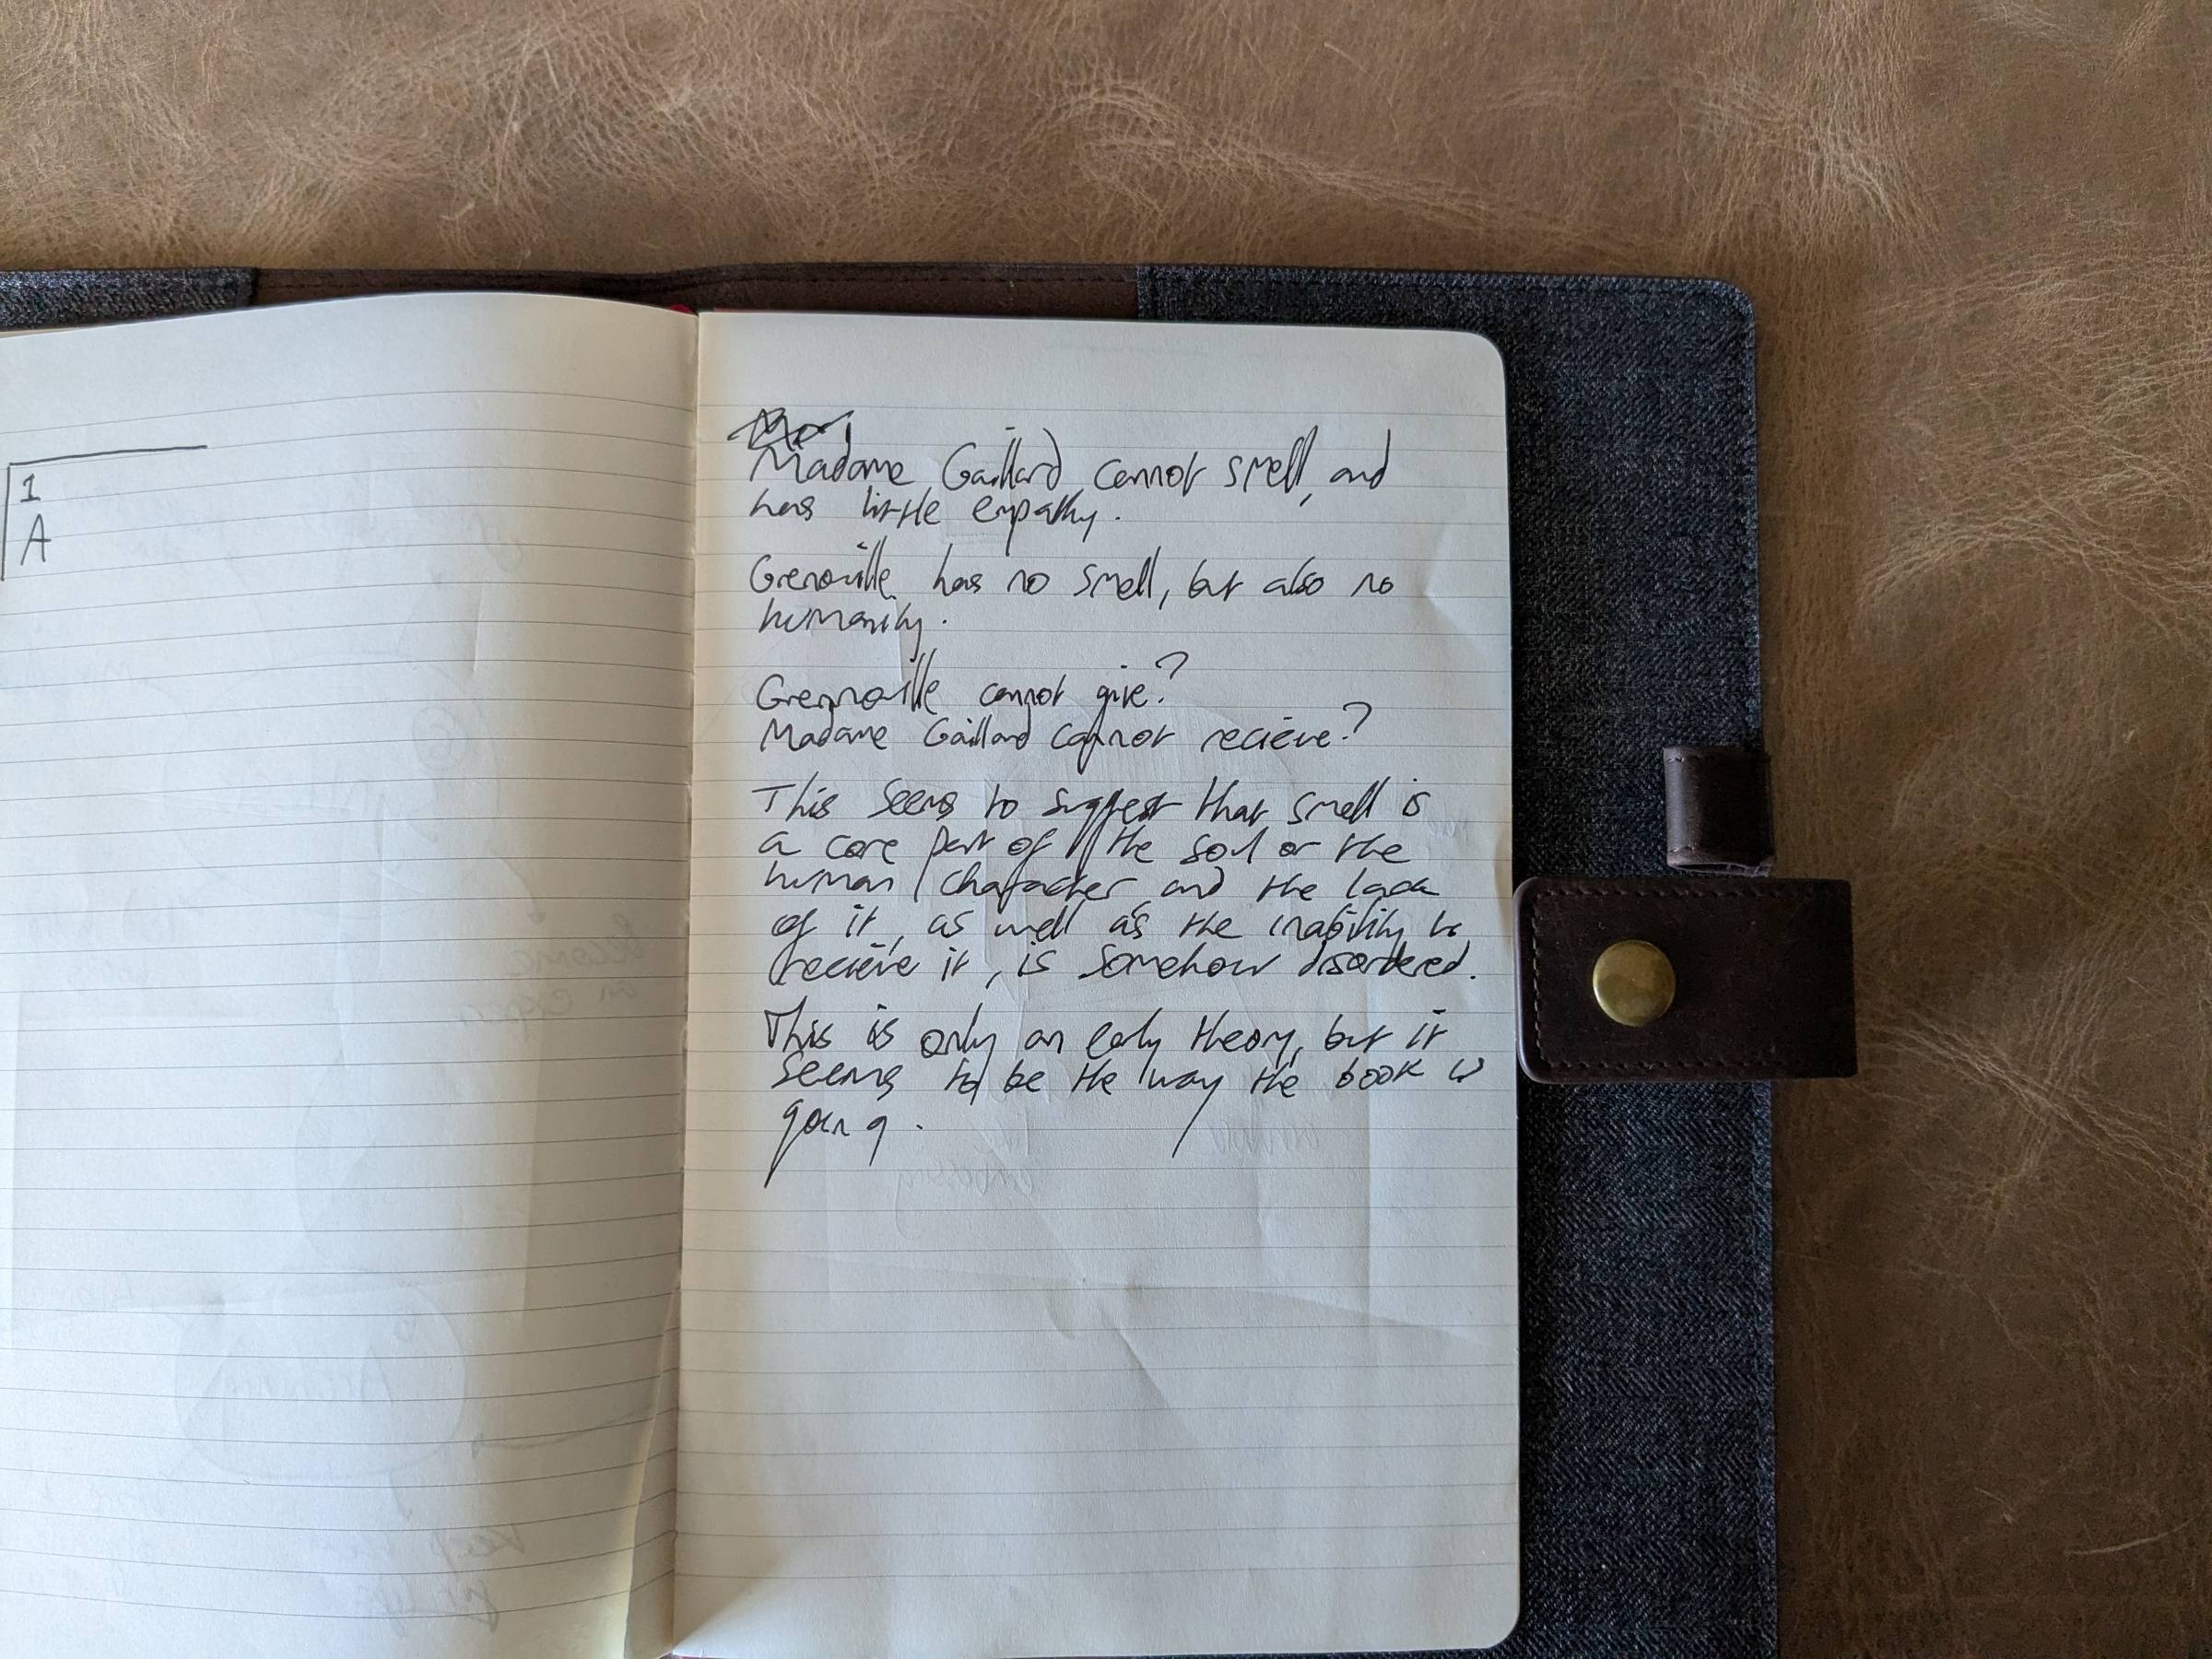 1
A
Madame Gaillard cannot smell, and
has little empathy.
Grenouille has no smell, but also no
humanity.
Grennouille cannot give?
Madame Gaillard cannot recieve?
This seems to suggest that smell is
a core part of the soul or the
human character and the lack
of it, as well as the inability to
recieve it, is somehow disordered.
This is only an early theory, but it
seems to be the way the book is
going.